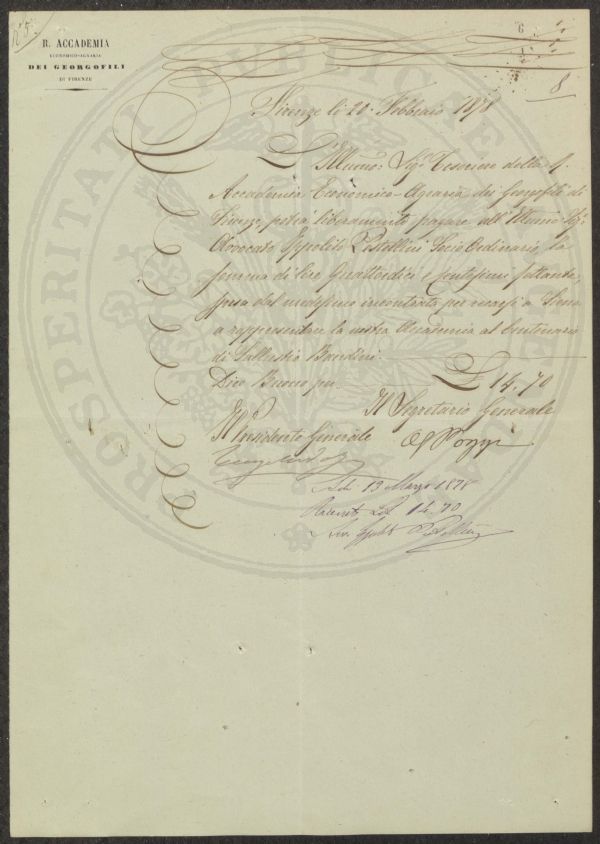 N° 5.
R. ACCADEMIA
ECONOMICO-AGRARIA
DEI GEORGOFILI
DI FIRENZE
6
1
8
PROSPERITATI PUBLICAE
Firenze li 20 Febbraio 1878
L'Illmo: Sigr: Tesoriere della R.
Accademia Economico-Agraria dei Georgofili di
Firenze, potrà liberamente pagare all'Illmo Sigr
Avvocato Ippolito Pestellini Socio Ordinario, la
somma di Lire Quattordici e Centesimi settanta,
spesa dal medesimo incontrata per recarsi a Siena
a rappresentare la nostra Accademia al Centenario
di Sallustio Bandini.
Dico Buono per L 14.70
Il Segretario Generale
Il Presidente Generale
A. Pozzi
Adi 13 Marzo 1878
Ricevuto L 14.70
Ippolito Pestellini